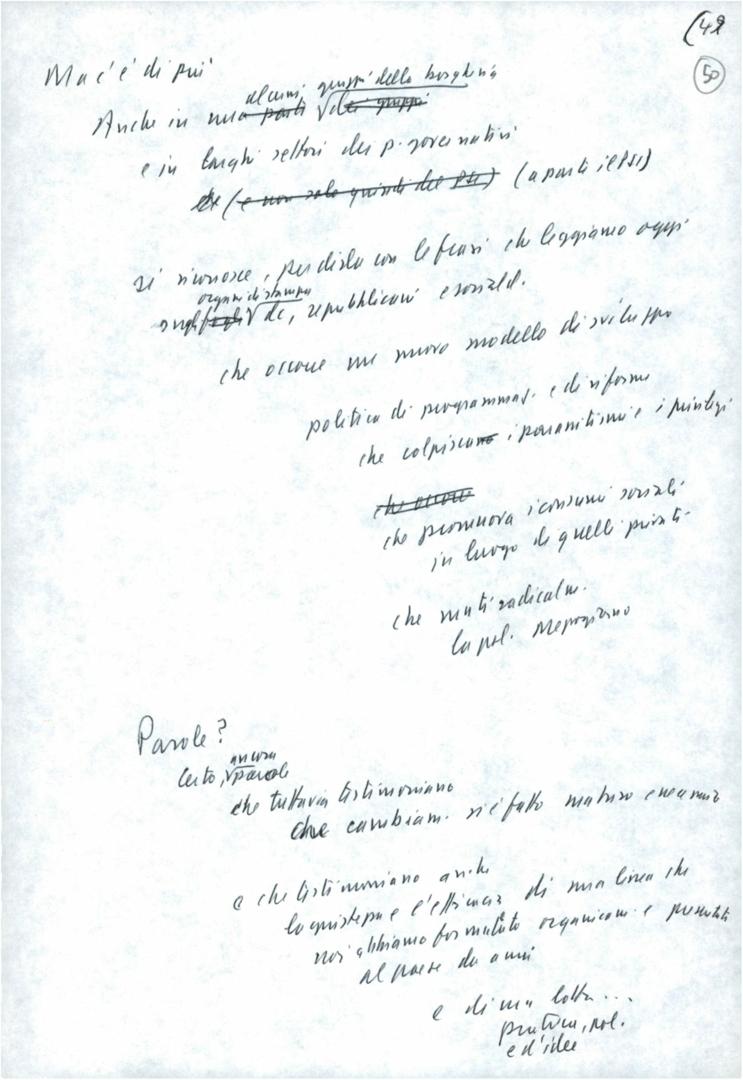 (42
50
Ma c'è di più
alcuni gruppi della borghesia
Anche in una parte √ dei gruppi
e in larghi settori dei p. governativi
(e non solo quindi del PSI) (a parte il PSI)
si riconosce, per dirla con le frasi che leggiamo oggi
organi di stampa
sugli fogli √ dc, repubblicani e sociald.
che occorre un nuovo modello di sviluppo
politica di programmaz. e di riforme
che colpiscano i parassitismi e i privilegi
che occorre
che promuova i consumi sociali
in luogo di quelli privati
che muti radicalm.
la pol. Mezzogiorno
Parole?
ancora
Certo, √ parole
che tuttavia testimoniano
che cambiam. si è fatto maturo e necessario
e che testimoniano anche
la giustezza e l'efficacia di una linea che
noi abbiamo formulato organicam. e presentato
al paese da anni
e di una lotta...
pratica, pol.
e d'idee